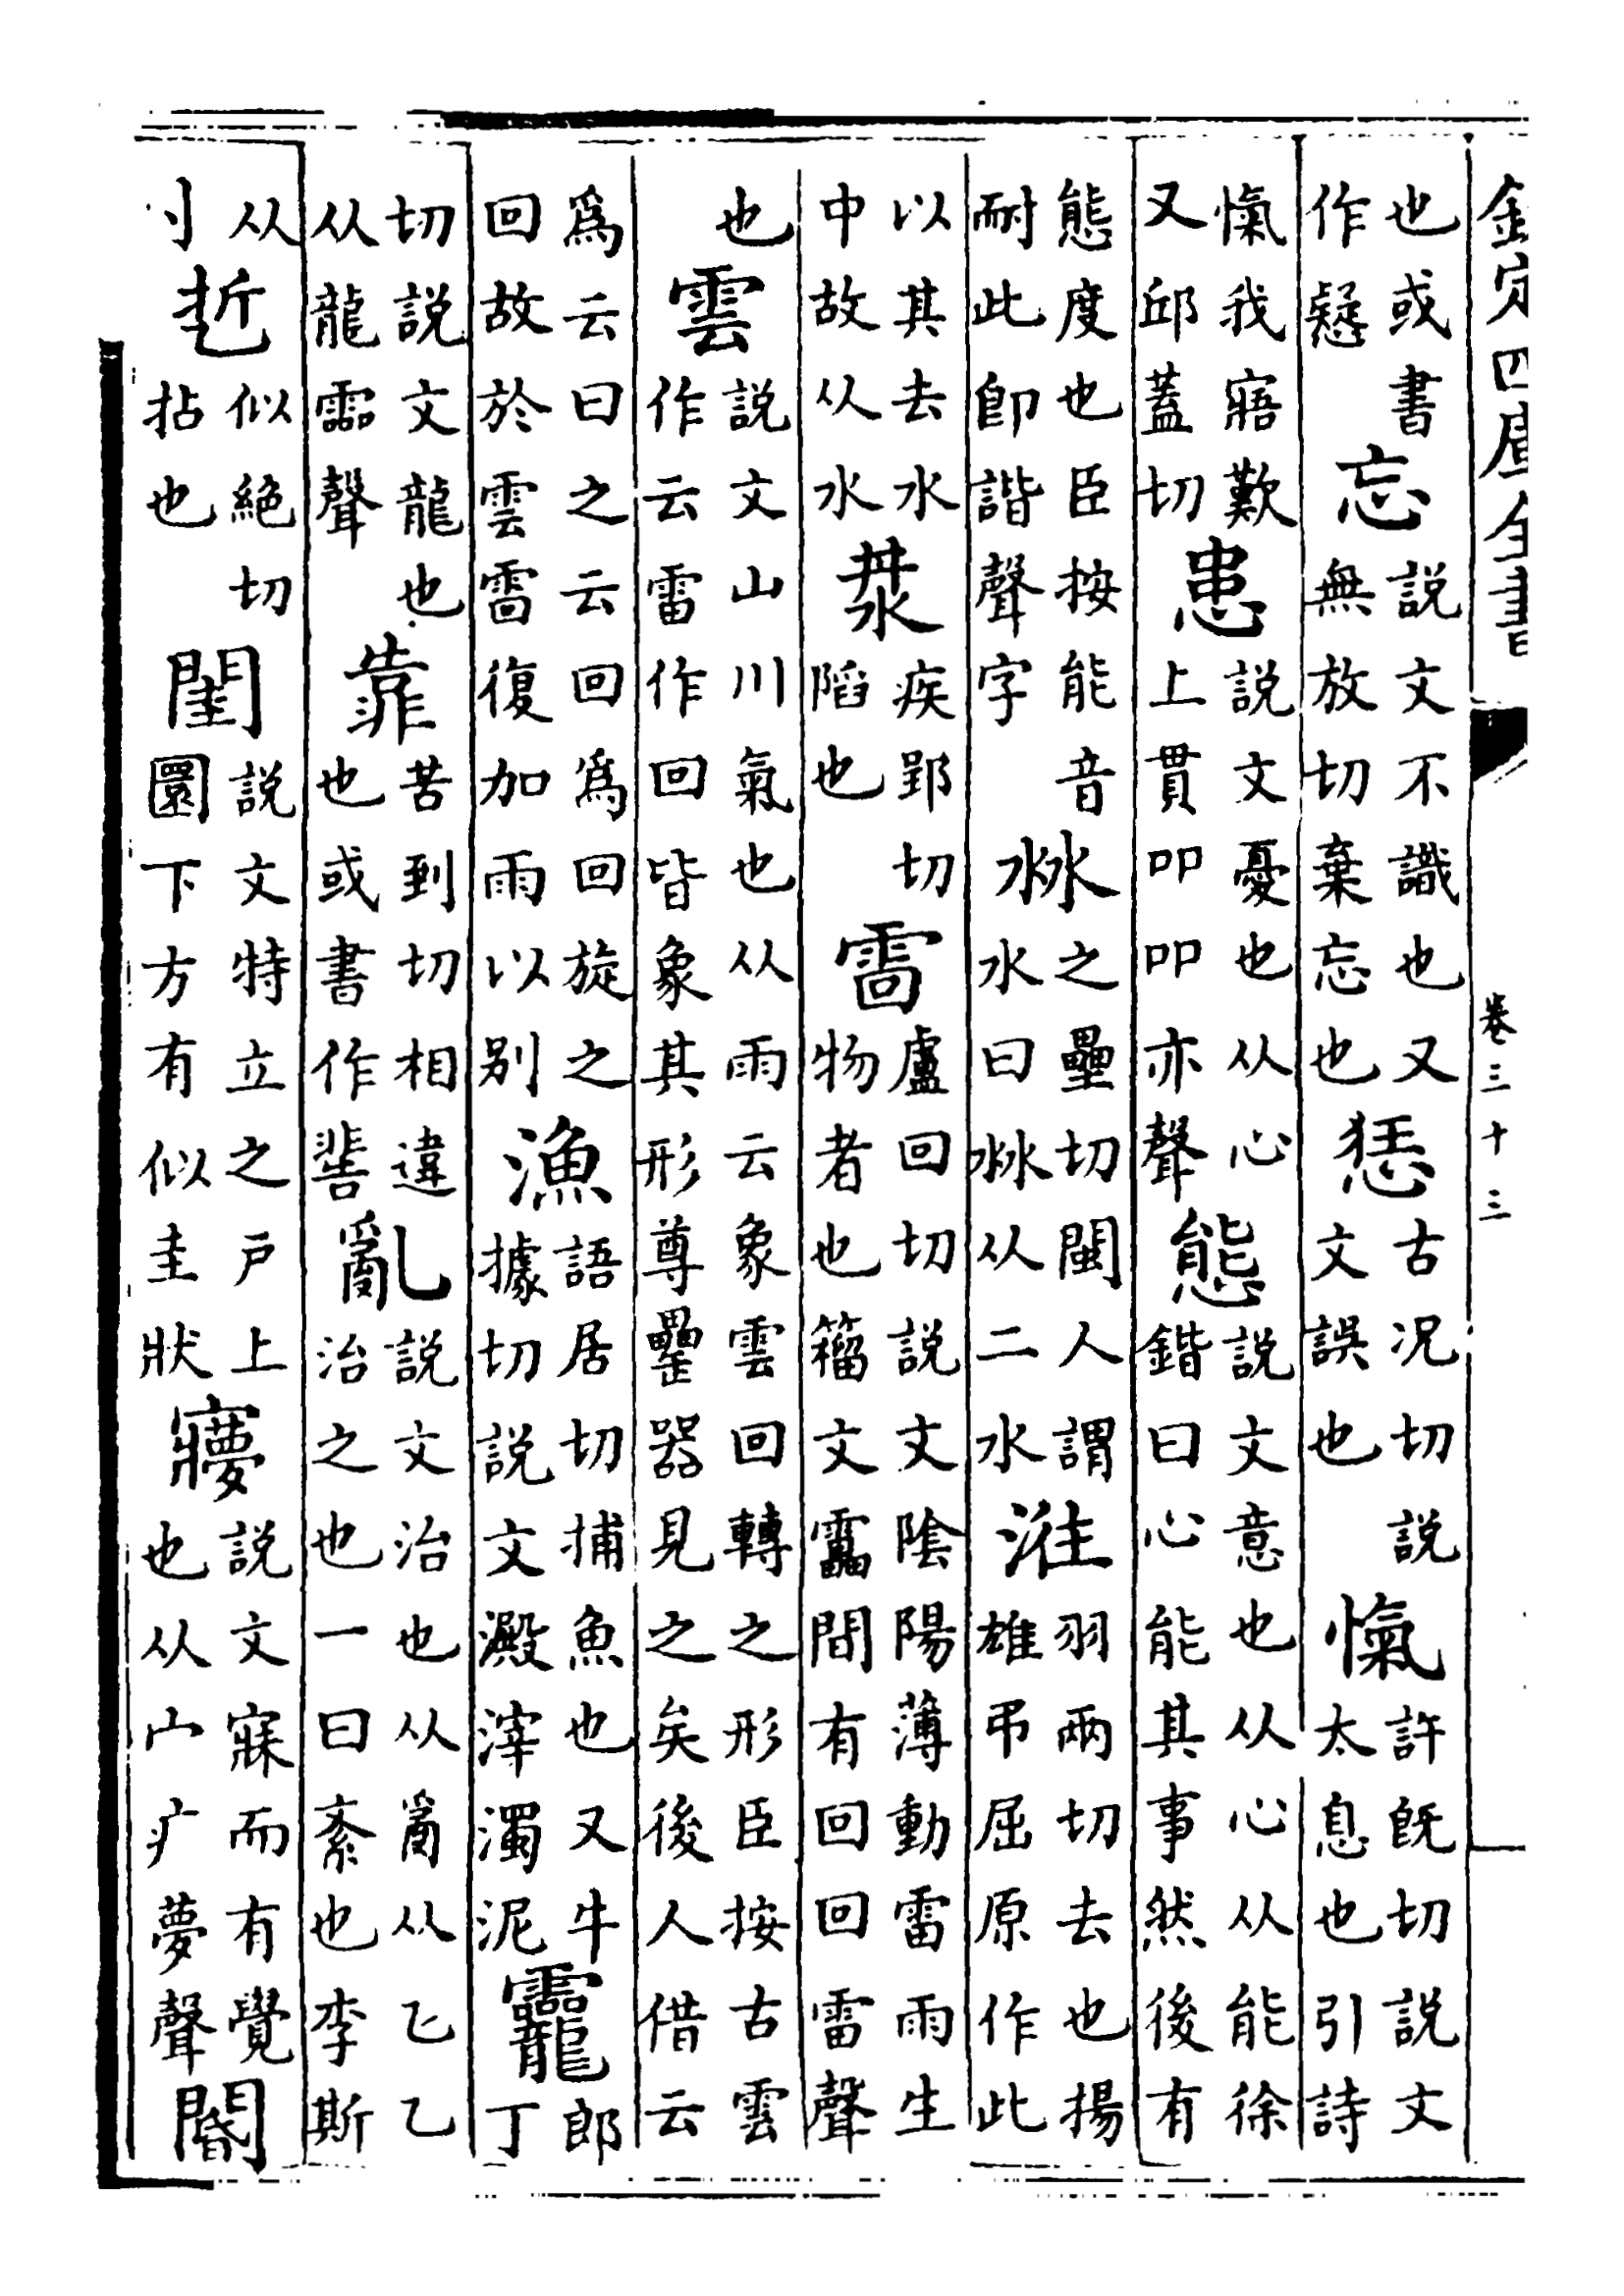 欽定四庫全書
卷三十三
也或書作懝忘説文不識也又無放切棄忘也㤮古况切説文誤也愾許既切説文太息也引詩
愾我寤歎又邱蓋切患説文憂也从心上貫吅吅亦聲態説文意也从心从能徐鍇曰心能其事然後有
態度也臣按能音耐此卽諧聲字沝之壘切閩人謂水曰沝从二水羽兩切去也揚雄弔屈原作此
以其去水中故从水汬疾郢切陷也盧回切説文陰陽薄動雷雨生物者也籀文間有回回雷聲
也雲説文山川氣也从雨云象雲回轉之形臣按古雲作云雷作回皆象其形尊罍器見之矣後人借云
爲云曰之云回爲回旋之回故於雲復加雨以别漁語居切捕魚也又牛據切説文澱滓濁泥龗郎丁
切説文龍也从龍霝聲靠苦到切相違也或書作亂説文治也从𤔔从乙乙治之也一曰紊也李斯
从寸似絶切拈也閨説文特立之戸上圜下方有似圭狀㝱説文寐而有覺也从宀疒夢聲閽